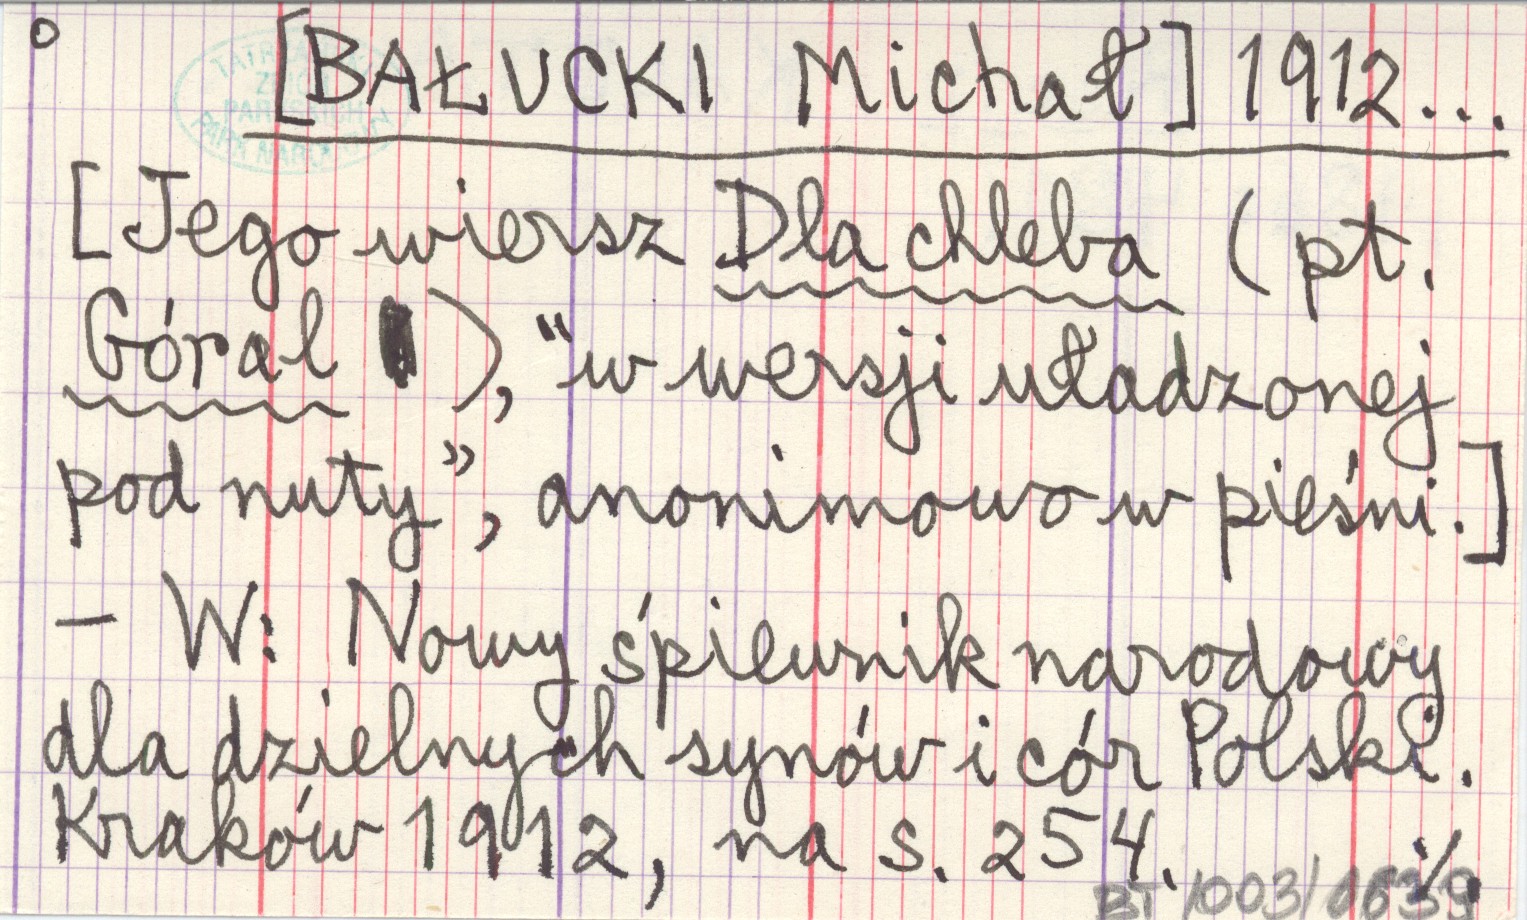 [BAŁUCKI Michał] 1912...
[Jego wiersz Dla chleba (pt.
Góral ), "w wersji uładzonej
pod nuty", anonimowo w pieśni.]
– W: Nowy śpiewnik narodowy
dla dzielnych synów i cór Polski.
Kraków 1912, na s. 254. ./.
BT 1003/